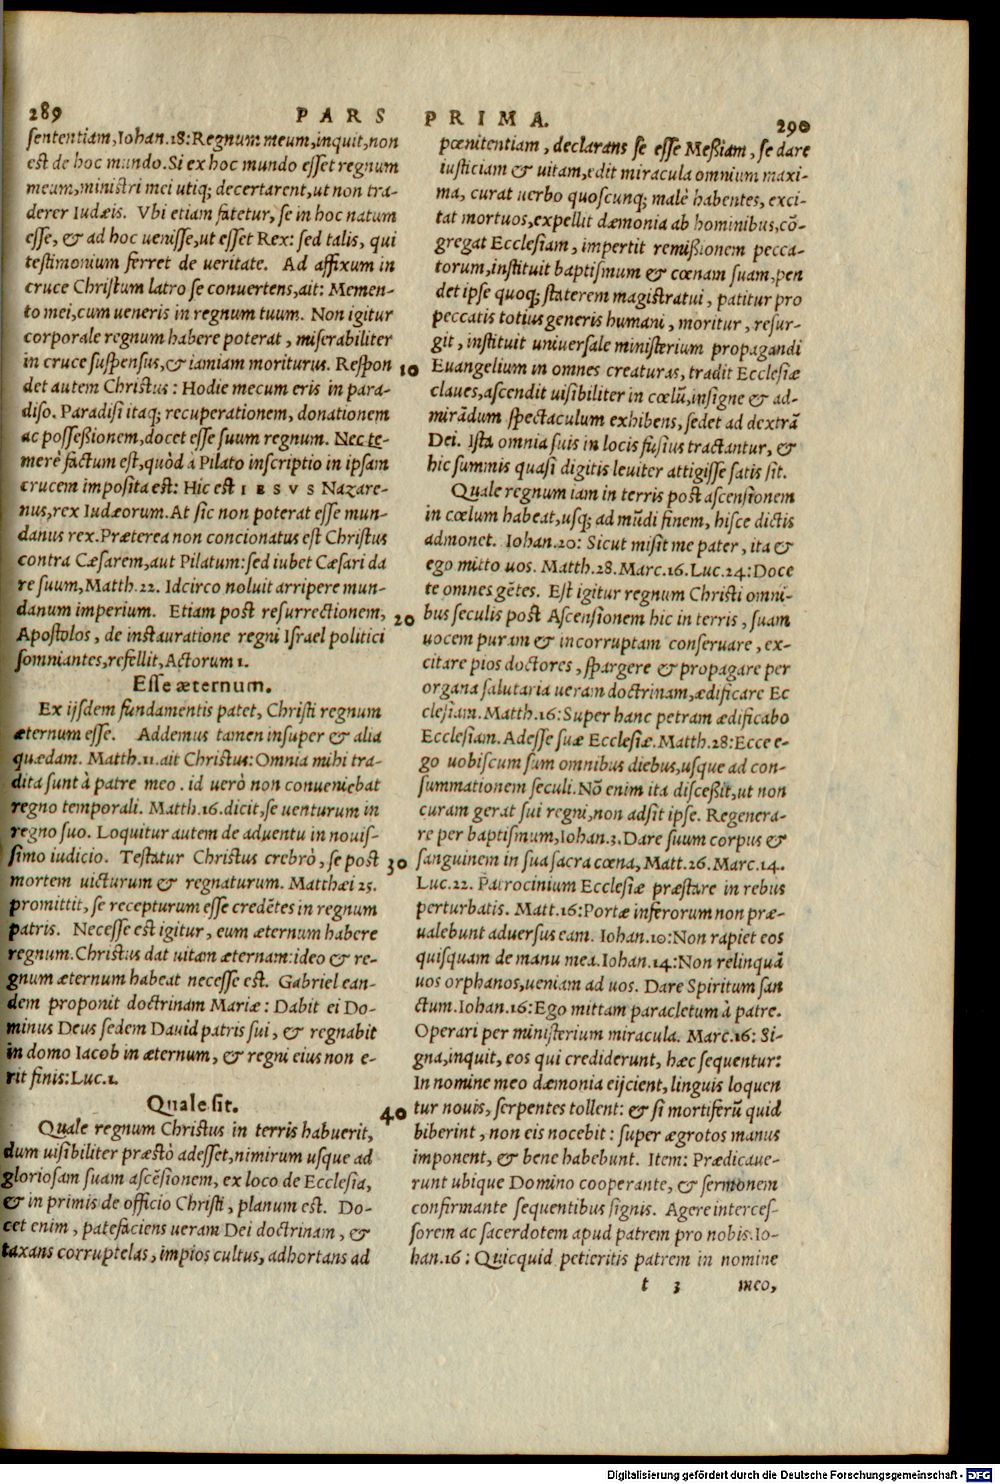 289
PARS PRIMA.
290
sententiam, Iohan.18: Regnum meum, inquit, non
est de hoc mundo. Si ex hoc mundo esset regnum
meum, ministri mei utiq; decertarent, ut non tra-
derer Iudæis. Vbi etiam fatetur, se in hoc natum
esse, & ad hoc uenisse, ut esset Rex: sed talis, qui
testimonium ferret de ueritate. Ad affixum in
cruce Christum latro se conuertens, ait: Memen-
to mei, cum ueneris in regnum tuum. Non igitur
corporale regnum habere poterat, miserabiliter
in cruce suspensus, & iamiam moriturus. Respon
det autem Christus: Hodie mecum eris in para-
diso. Paradisi itaq; recuperationem, donationem
ac possessionem, docet esse suum regnum. Nec te-
merè factum est, quòd à Pilato inscriptio in ipsam
crucem imposita est: Hic est IESVS Nazare-
nus, rex Iudæorum. At sic non poterat esse mun-
danus rex. Præterea non concionatus est Christus
contra Cæsarem, aut Pilatum: sed iubet Cæsari da
re suum, Matth. 22. Idcirco noluit arripere mun-
danum imperium. Etiam post resurrectionem,
Apostolos, de instauratione regni Israel politici
somniantes, refellit, Actorum 1.
Esse æternum.
Ex ijsdem fundamentis patet, Christi regnum
æternum esse. Addemus tamen insuper & alia
quædam. Matth.11. ait Christus: Omnia mihi tra-
dita sunt à patre meo. id uerò non conueniebat
regno temporali. Matth.16. dicit, se uenturum in
regno suo. Loquitur autem de aduentu in nouis-
simo iudicio. Testatur Christus crebrò, se post
mortem uicturum & regnaturum. Matthæi 25.
promittit, se recepturum esse credētes in regnum
patris. Necesse est igitur, eum æternum habere
regnum. Christus dat uitam æternam: ideo & re-
gnum æternum habeat necesse est. Gabriel ean-
dem proponit doctrinam Mariæ: Dabit ei Do-
minus Deus sedem Dauid patris sui, & regnabit
in domo Iacob in æternum, & regni eius non e-
rit finis: Luc.1.
Quale sit.
Quale regnum Christus in terris habuerit,
dum uisibiliter præstò adesset, nimirum usque ad
gloriosam suam ascēsionem, ex loco de Ecclesia,
& in primis de officio Christi, planum est. Do-
cet enim, patefaciens ueram Dei doctrinam, &
taxans corruptelas, impios cultus, adhortans ad
10
20
30
40
pœnitentiam, declarans se esse Meßiam, se dare
iusticiam & uitam, edit miracula omnium maxi-
ma, curat uerbo quoscunq; malè habentes, exci-
tat mortuos, expellit dæmonia ab hominibus, cō-
gregat Ecclesiam, impertit remißionem pecca-
torum, instituit baptismum & cœnam suam, pen
det ipse quoq; staterem magistratui, patitur pro
peccatis totius generis humani, moritur, resur-
git, instituit uniuersale ministerium propagandi
Euangelium in omnes creaturas, tradit Ecclesiæ
claues, ascendit uisibiliter in cœlū, insigne & ad-
mirādum spectaculum exhibens, sedet ad dextrā
Dei. Ista omnia suis in locis fusius tractantur, &
hic summis quasi digitis leuiter attigisse satis sit.
Quale regnum iam in terris post ascensionem
in cœlum habeat, usq; ad mūdi finem, hisce dictis
admonet. Iohan.20: Sicut misit me pater, ita &
ego mitto uos. Matth.28. Marc.16. Luc.24: Doce
te omnes gētes. Est igitur regnum Christi omni-
bus seculis post Ascensionem hic in terris, suam
uocem puram & incorruptam conseruare, ex-
citare pios doctores, spargere & propagare per
organa salutaria ueram doctrinam, ædificare Ec
clesiam. Matth.16: Super hanc petram ædificabo
Ecclesiam. Adesse suæ Ecclesiæ. Matth.28: Ecce e-
go uobiscum sum omnibus diebus, usque ad con-
summationem seculi. Nō enim ita disceßit, ut non
curam gerat sui regni, non adsit ipse. Regenera-
re per baptismum, Iohan.3. Dare suum corpus &
sanguinem in sua sacra cœna, Matt.26. Marc.14.
Luc.22. Patrocinium Ecclesiæ præstare in rebus
perturbatis. Matt.16: Portæ inferorum non præ-
ualebunt aduersus eam. Iohan.10: Non rapiet eos
quisquam de manu mea. Iohan.14: Non relinquā
uos orphanos, ueniam ad uos. Dare Spiritum san
ctum. Iohan.16: Ego mittam paracletum à patre.
Operari per ministerium miracula. Marc.16: Si-
gna, inquit, eos qui crediderunt, hæc sequentur:
In nomine meo dæmonia eijcient, linguis loquen
tur nouis, serpentes tollent: & si mortiferū quid
biberint, non eis nocebit: super ægrotos manus
imponent, & bene habebunt. Item: Prædicaue-
runt ubique Domino cooperante, & sermonem
confirmante sequentibus signis. Agere interces-
sorem ac sacerdotem apud patrem pro nobis. Io-
han.16: Quicquid petieritis patrem in nomine
t 3 meo,
Digitalisierung gefördert durch die Deutsche Forschungsgemeinschaft - DFG